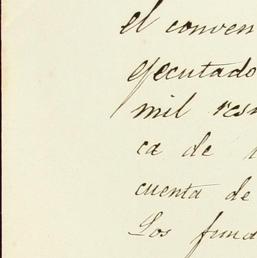 el conven
ejecutado
mil res
ca de
cuenta de
Los fund